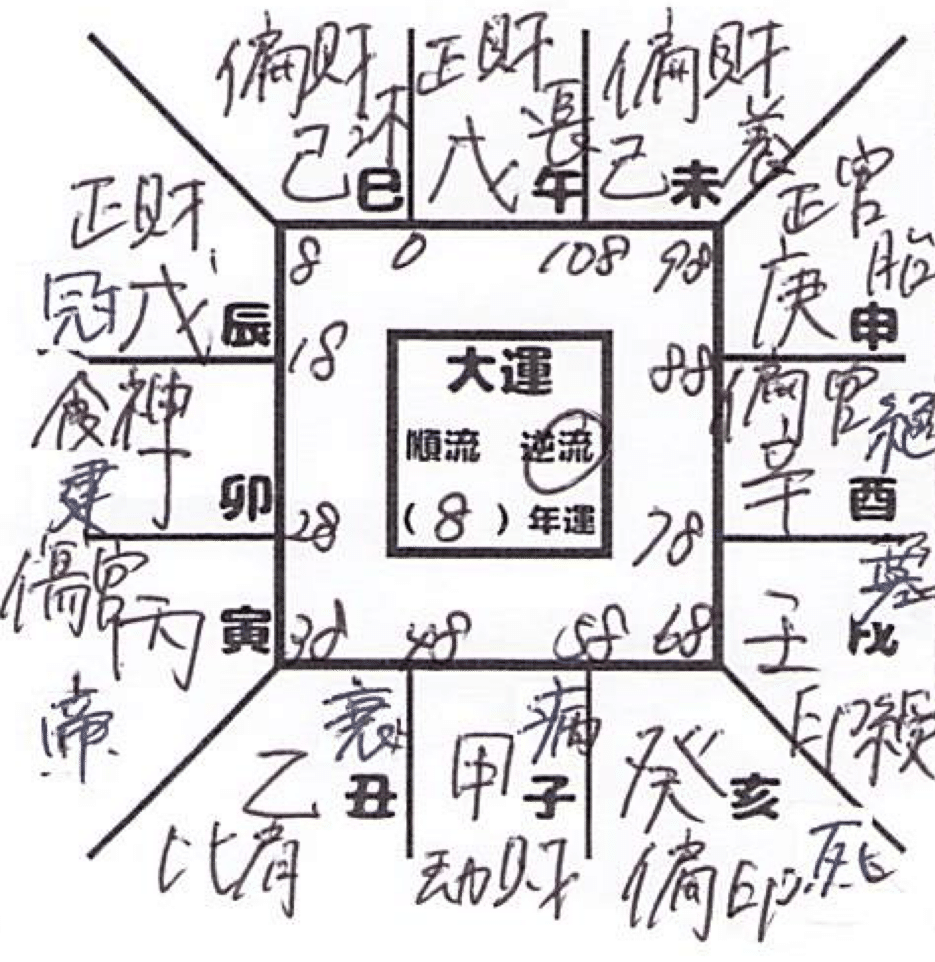 偏財
己 沐 巳
正財
戊 長 午
偏財
己 未 養
正財
冠 戊 辰
正官
庚 胎 申
食神
建 丁 卯
偏官
辛 絶 酉
傷官
丙 寅
帝
壬 墓 戌
印綬
乙 衰 丑
比肩
甲 病 子
劫財
癸 亥
偏印 死
8 0 108 98
18 88
28 78
38 48 58 68
大運
順流 逆流
(8)年運